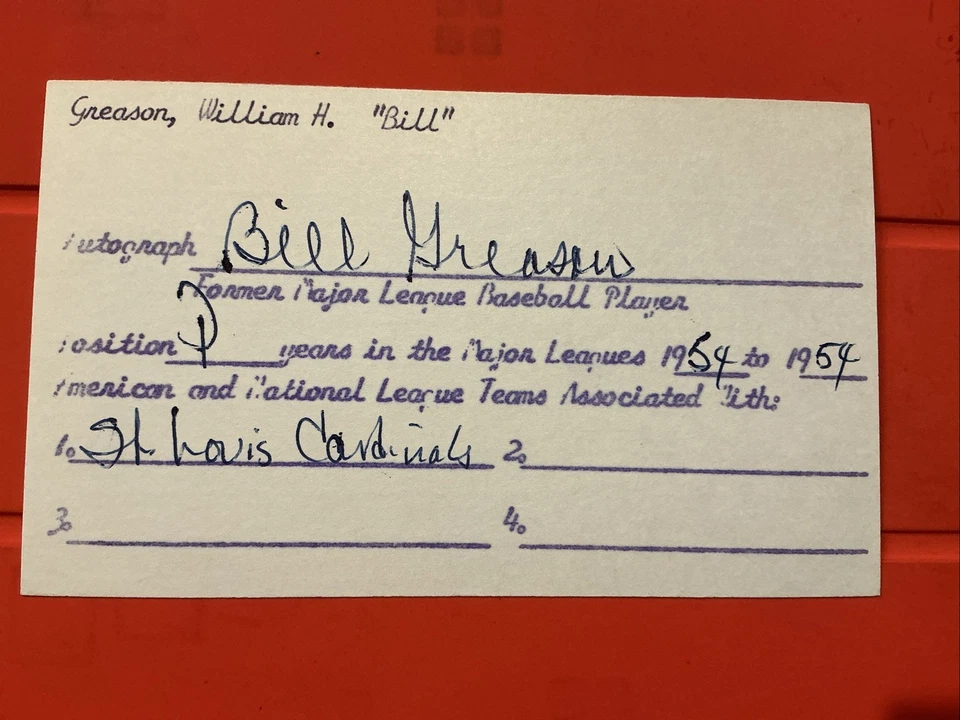 Greason, William H. "Bill"
Autograph Bill Greason
Former Major League Baseball Player
Position P years in the Major Leagues 1954 to 1954
American and National League Teams Associated With:
1. St. Louis Cardinals 2.
3. 4.